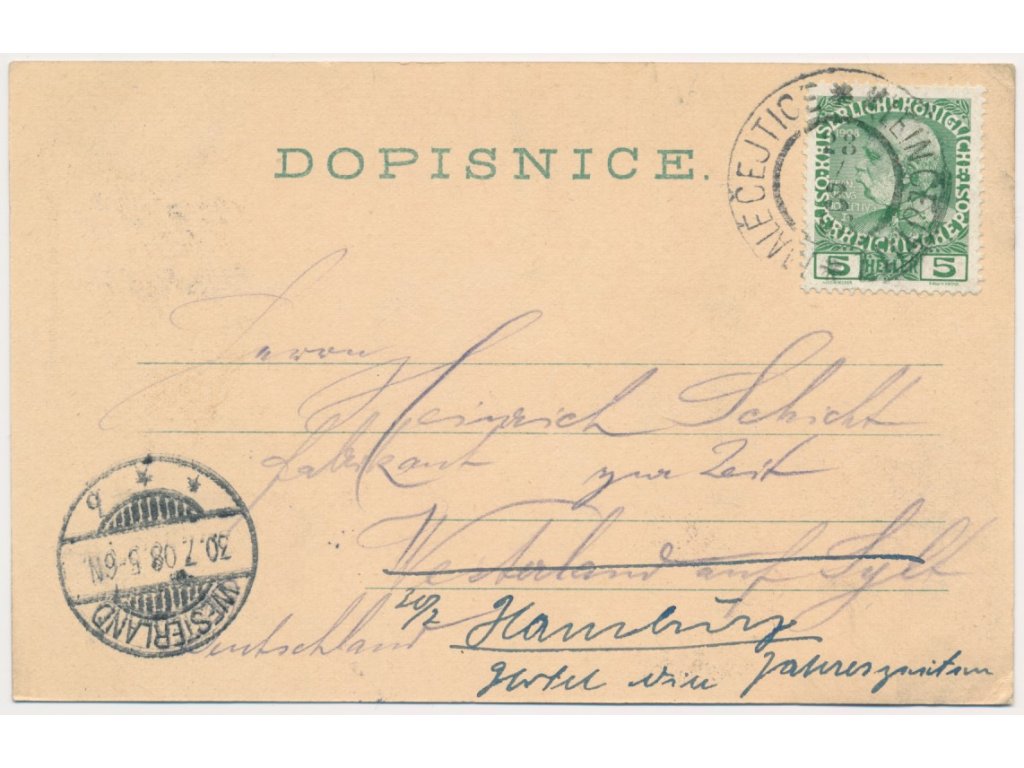 DOPISNICE.
MALÉ ČEJTICE * KLEIN ČEJ
KAISERLICHE KÖNIGLICHE ÖSTERREICHISCHE POST
5 HELLER 5
Herrn
Heinrich Schicht
Fabrikant zur Zeit
Westerland auf Sylt
30/7 Hamburg
Deutschland
Hotel Vier Jahreszeiten
WESTERLAND
30.7.08.5-6N.
* * b